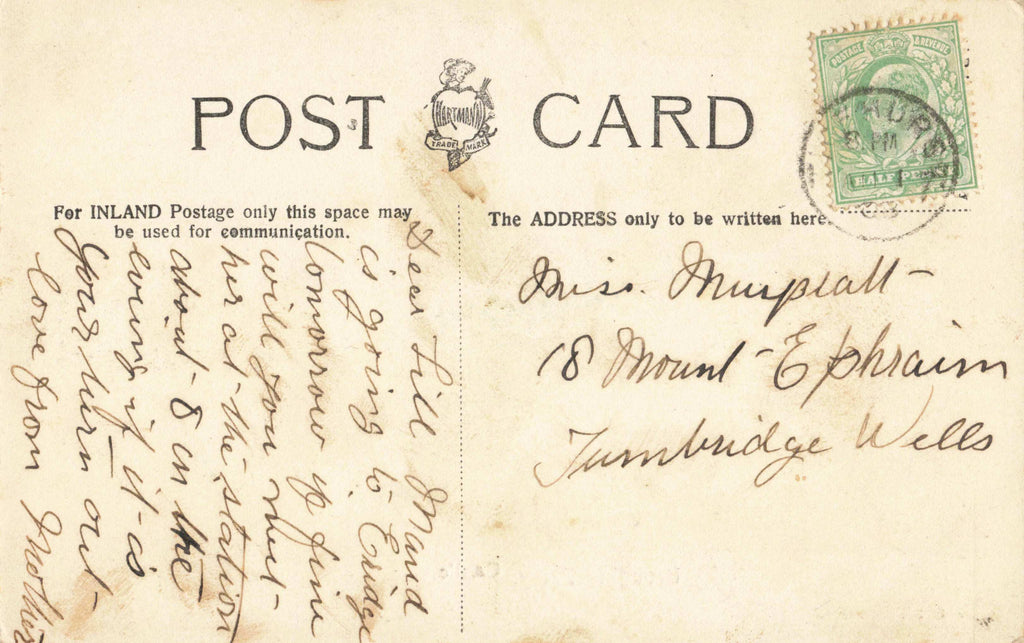 POST CARD
HARTMANN
TRADE MARK
POSTAGE & REVENUE
HALFPENNY
PM
For INLAND Postage only this space may
be used for communication.
The ADDRESS only to be written here.
Dear Lill Maud
is going to Eridge
tomorrow if fine
will you meet
her at the station
about 8 in the
evening if it is
your turn out
love from Mother
Miss.
18 Mount Ephraim
Tumbridge Wells